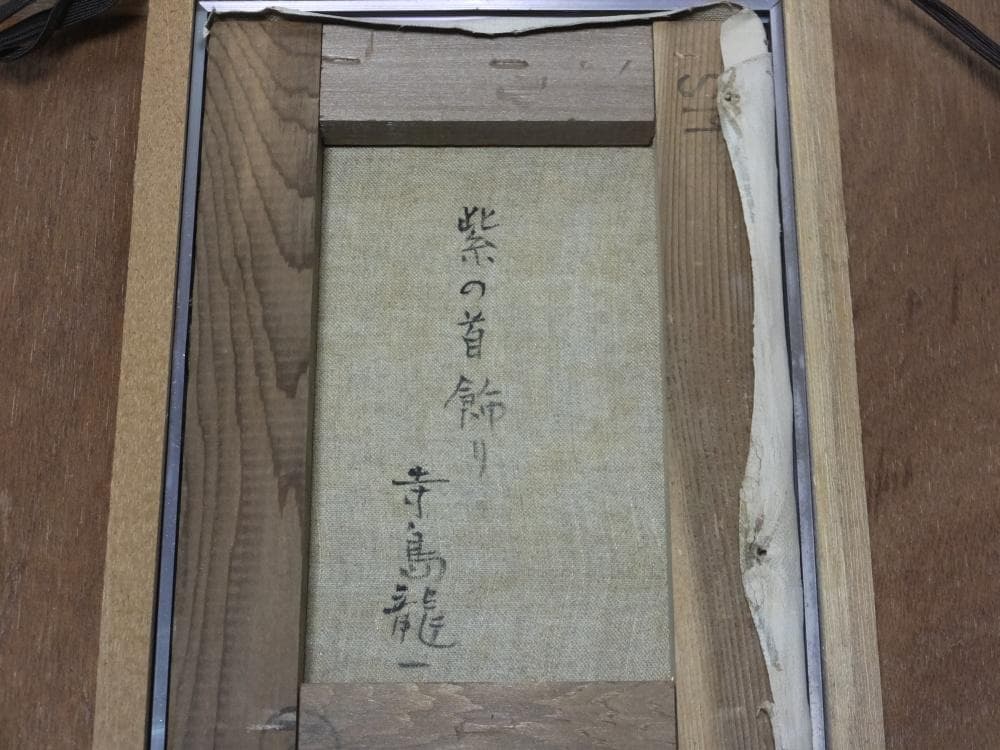 紫の首飾り
寺島龍一